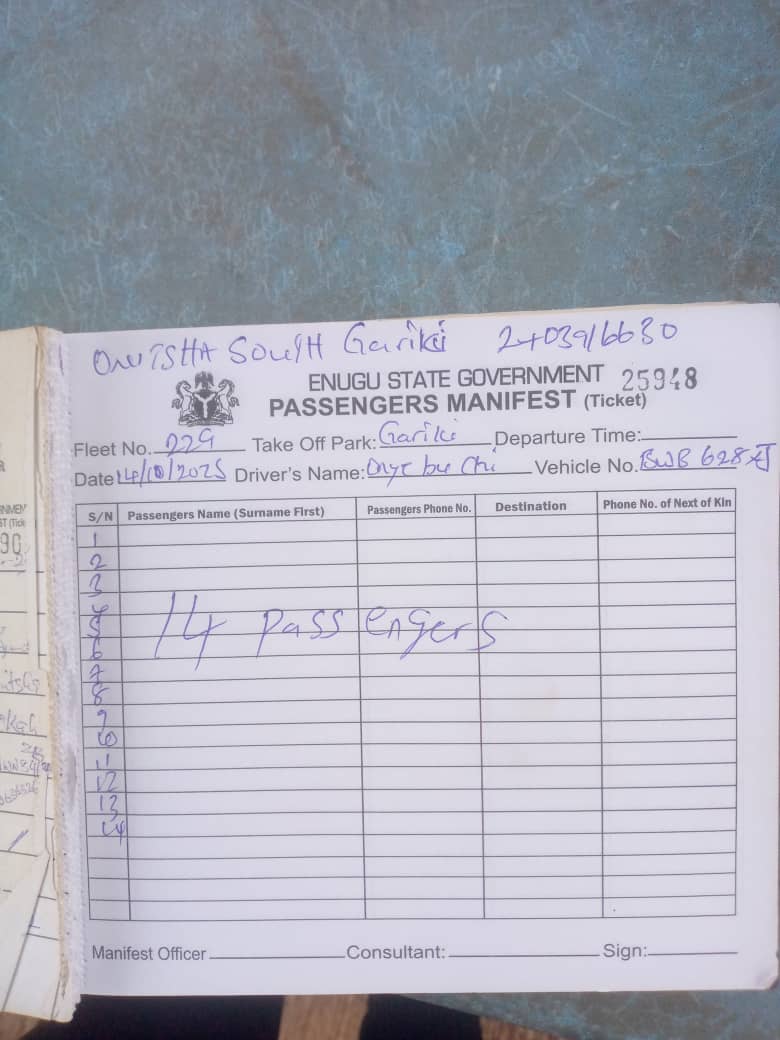 ONITSHA SOUTH Gariki 2403916630
ENUGU STATE GOVERNMENT 25948
PASSENGERS MANIFEST (Ticket)
Fleet No. 229 Take Off Park: Gariki Departure Time:
Date 14/10/2025 Driver's Name: Vehicle No. BWB 628
S/N Passengers Name (Surname First) Passengers Phone No. Destination Phone No. of Next of Kin
1
2
3
4
5
14 passengers
6
7
8
9
10
11
12
13
14
Manifest Officer Consultant: Sign: